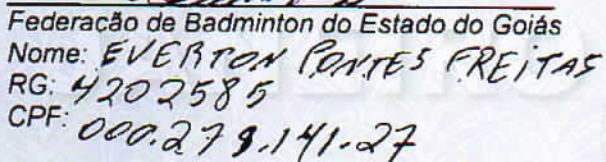 Federação de Badminton do Estado do Goiás
Nome: EVERTON PONTES FREITAS
RG: 4202585
CPF: 000.279.141-27